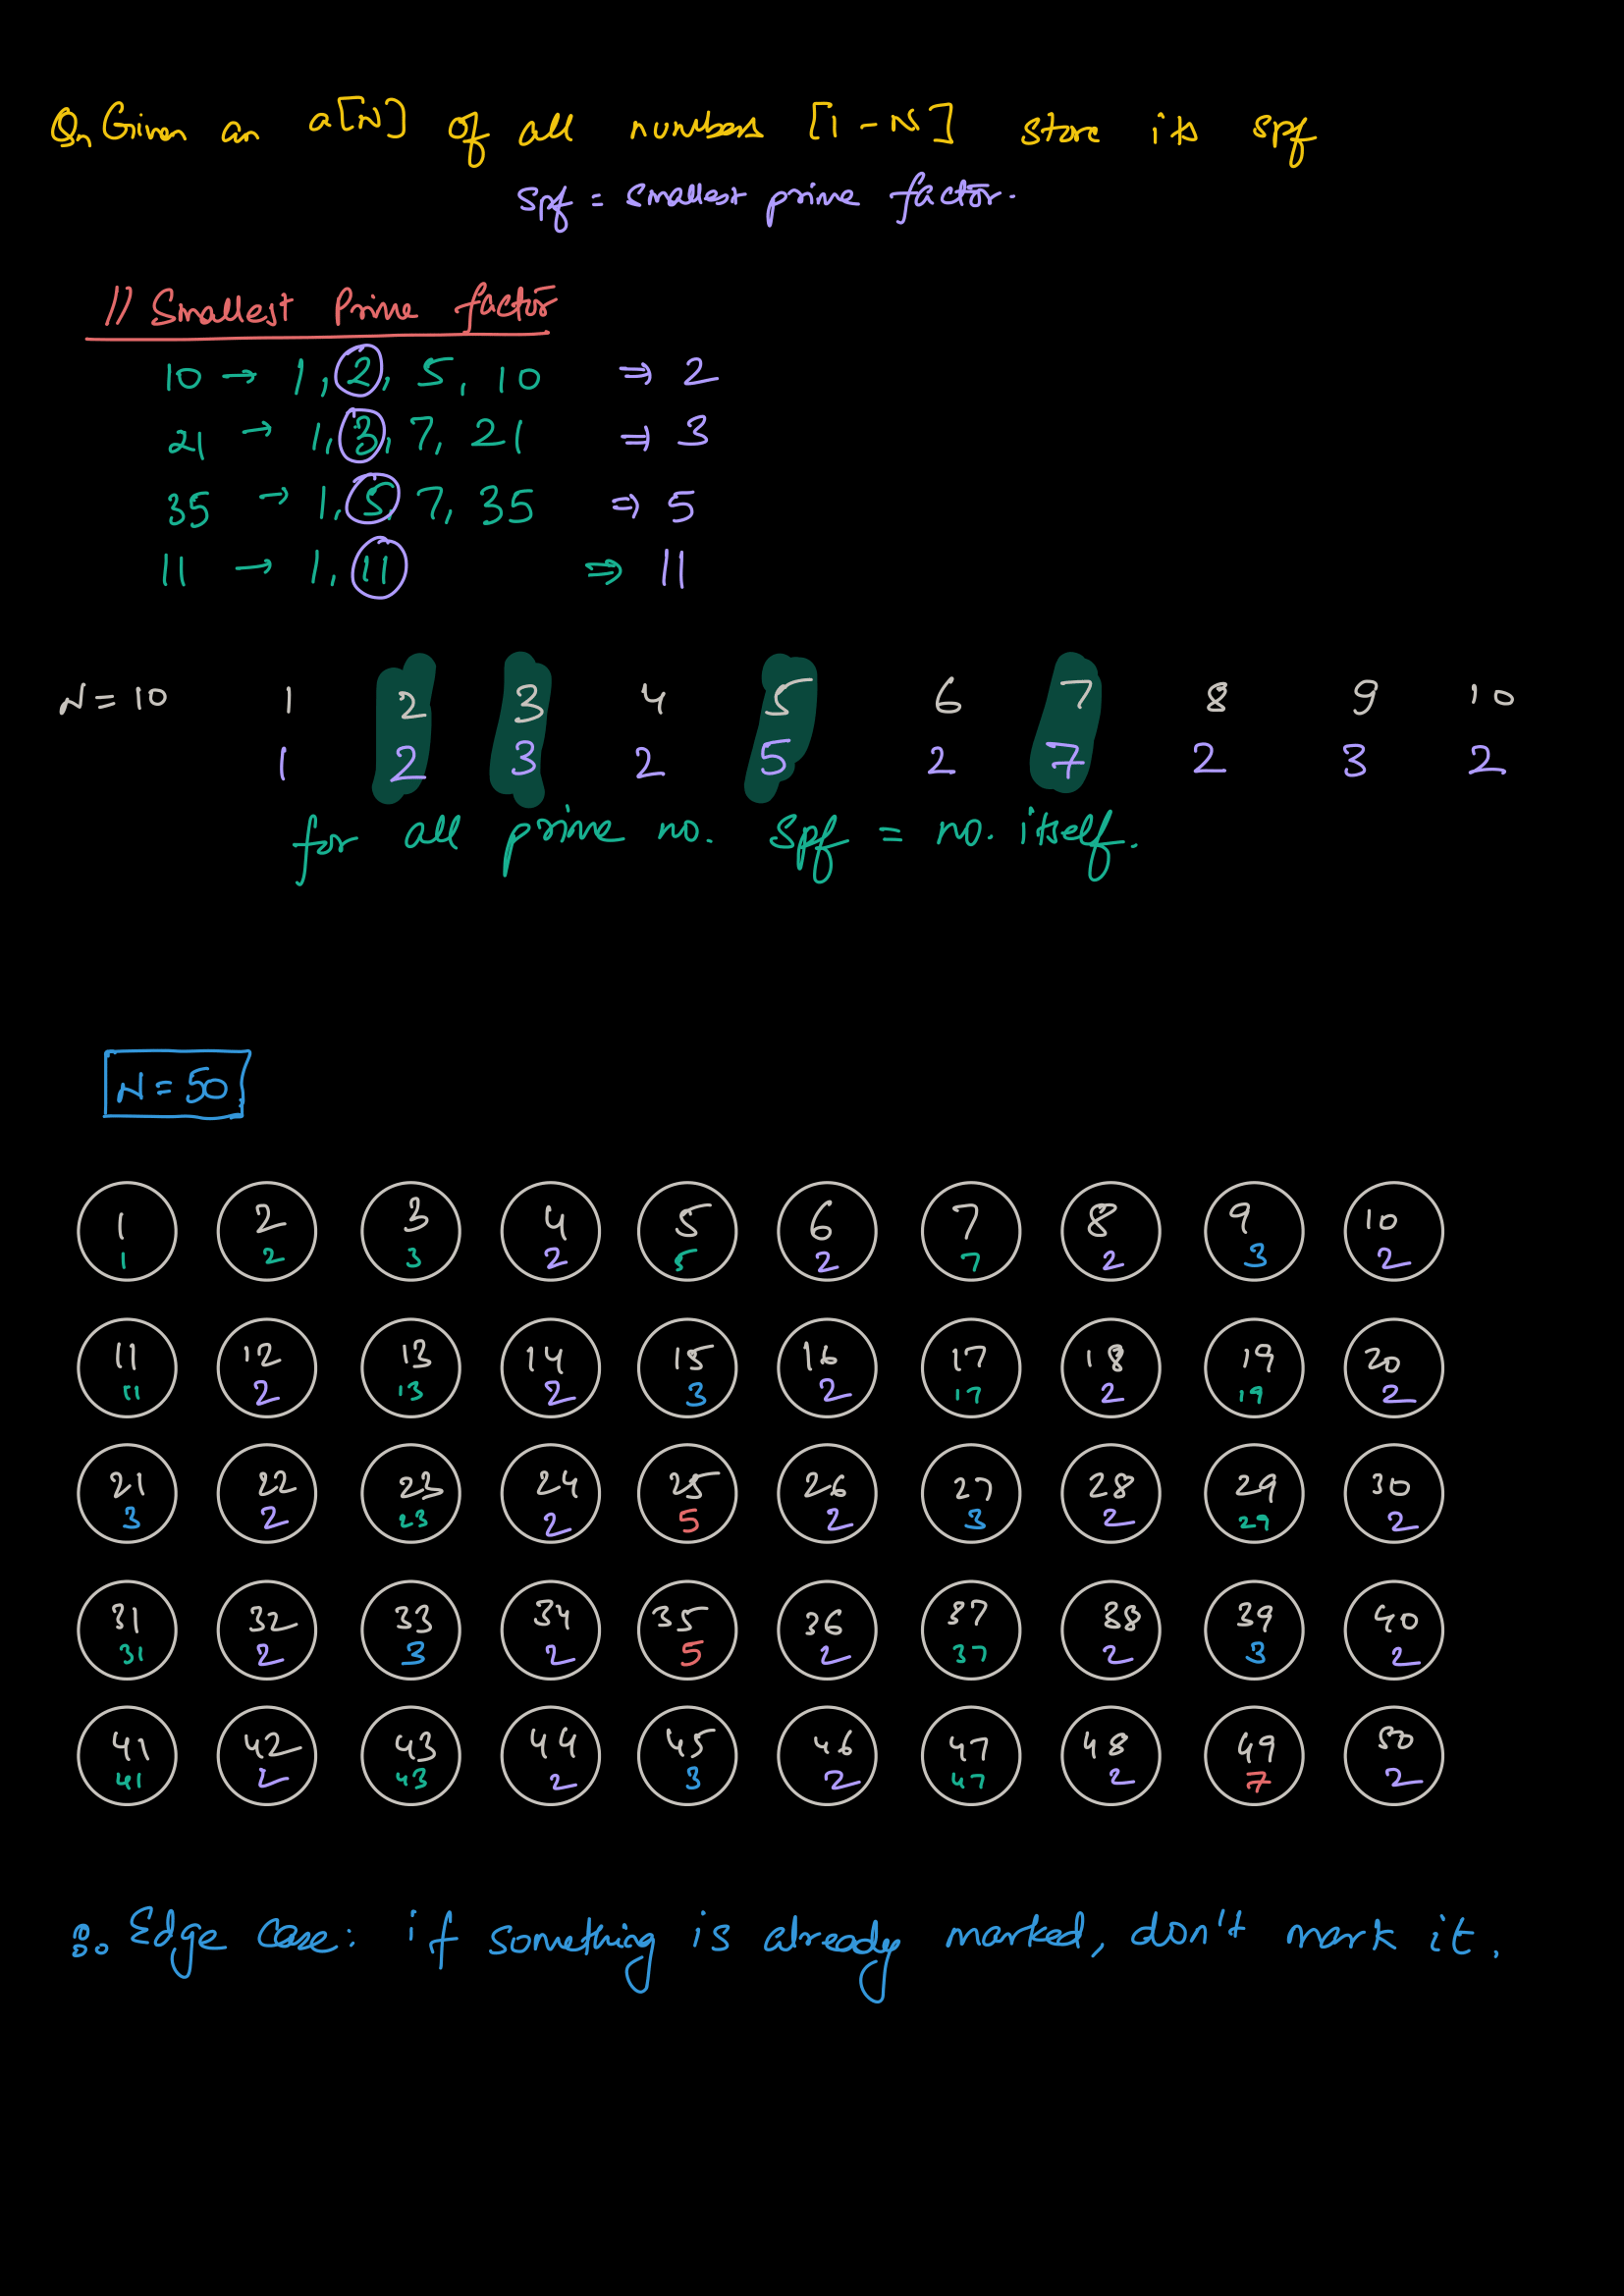 Q. Given an a[N] of all numbers [1-N] store its spf
spf = smallest prime factor.
// Smallest Prime factor
10 → 1, 2, 5, 10 ⇒ 2
21 → 1, 3, 7, 21 ⇒ 3
35 → 1, 5, 7, 35 ⇒ 5
11 → 1, 11 ⇒ 11
N = 10 1 2 3 4 5 6 7 8 9 10
1 2 3 2 5 2 7 2 3 2
for all prime no. spf = no. itself.
N = 50
1 2 3 4 5 6 7 8 9 10
1 2 3 2 5 2 7 2 3 2
11 12 13 14 15 16 17 18 19 20
11 2 13 2 3 2 17 2 19 2
21 22 23 24 25 26 27 28 29 30
3 2 23 2 5 2 3 2 29 2
31 32 33 34 35 36 37 38 39 40
31 2 3 2 5 2 37 2 3 2
41 42 43 44 45 46 47 48 49 50
41 2 43 2 3 2 47 2 7 2
Edge Case: if something is already marked, don't mark it.